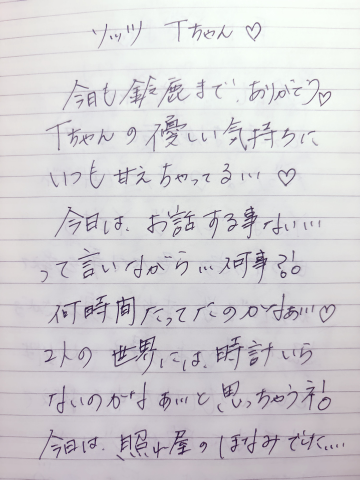 ソッツ Tちゃん♡
今日も鈴鹿まで、ありがとう♡
Tちゃんの優しい気持ちに
いつも甘えちゃってる…♡
今日は、お話する事ない…
って言いながら…何事?!
何時間たってたのかなぁ…♡
2人の世界には、時計いら
ないのかなぁ…と思っちゃうネ!
今日は、照れ屋のほなみでした….